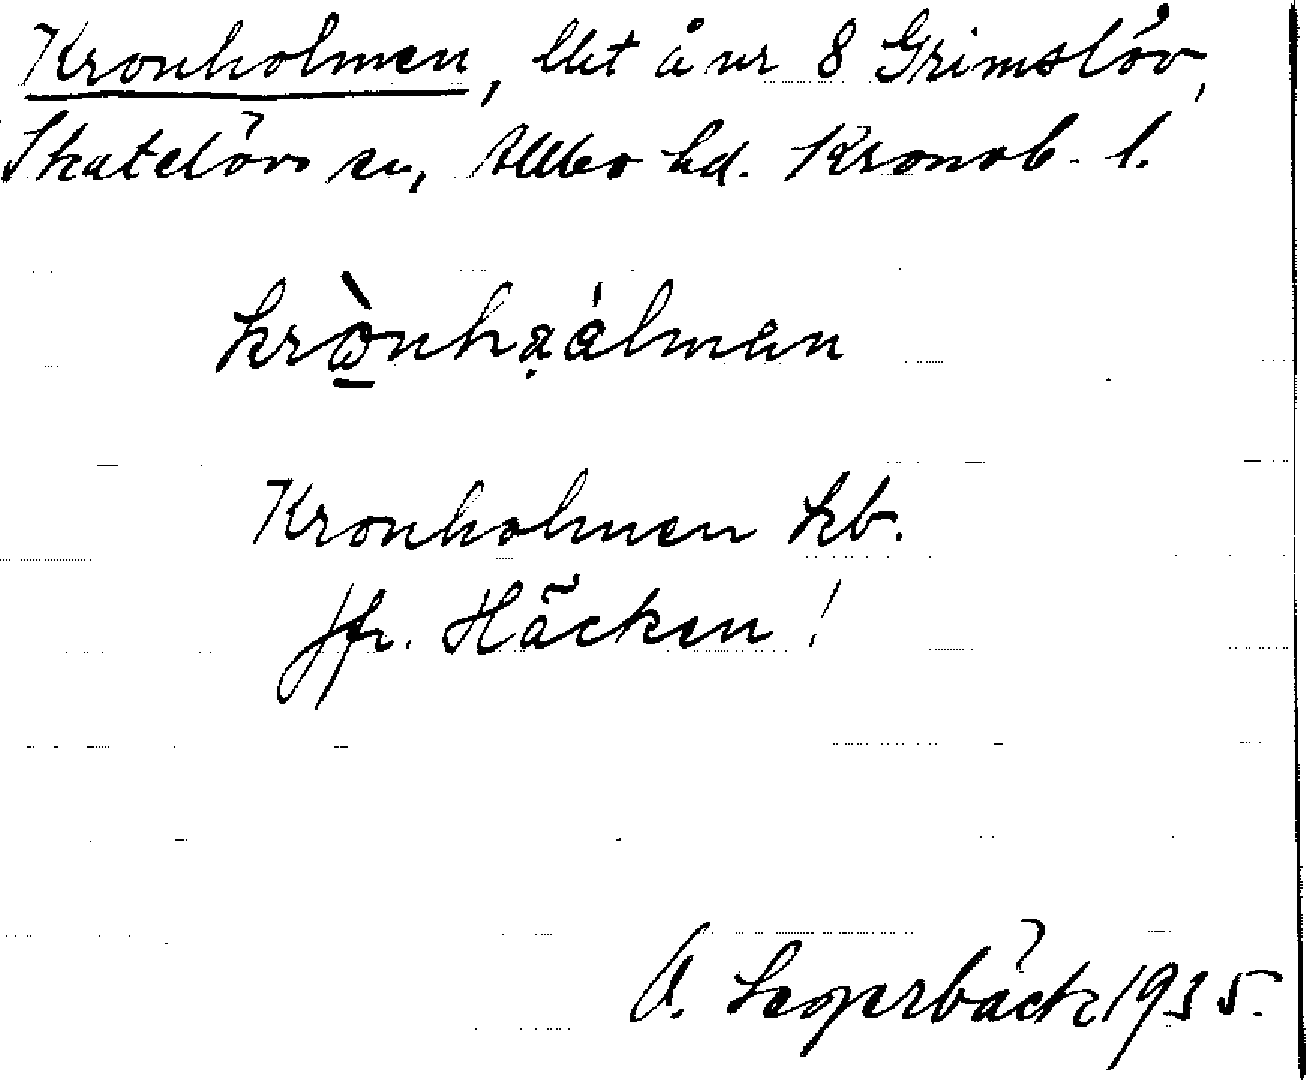 Kronholmen, lht å nr 8 Grimslöv,
Skatelövs sn, Allbo hd. Kronob. l.
Kronholmen kb.
Jfr. Häcken!
A. Segerbäck 1935.